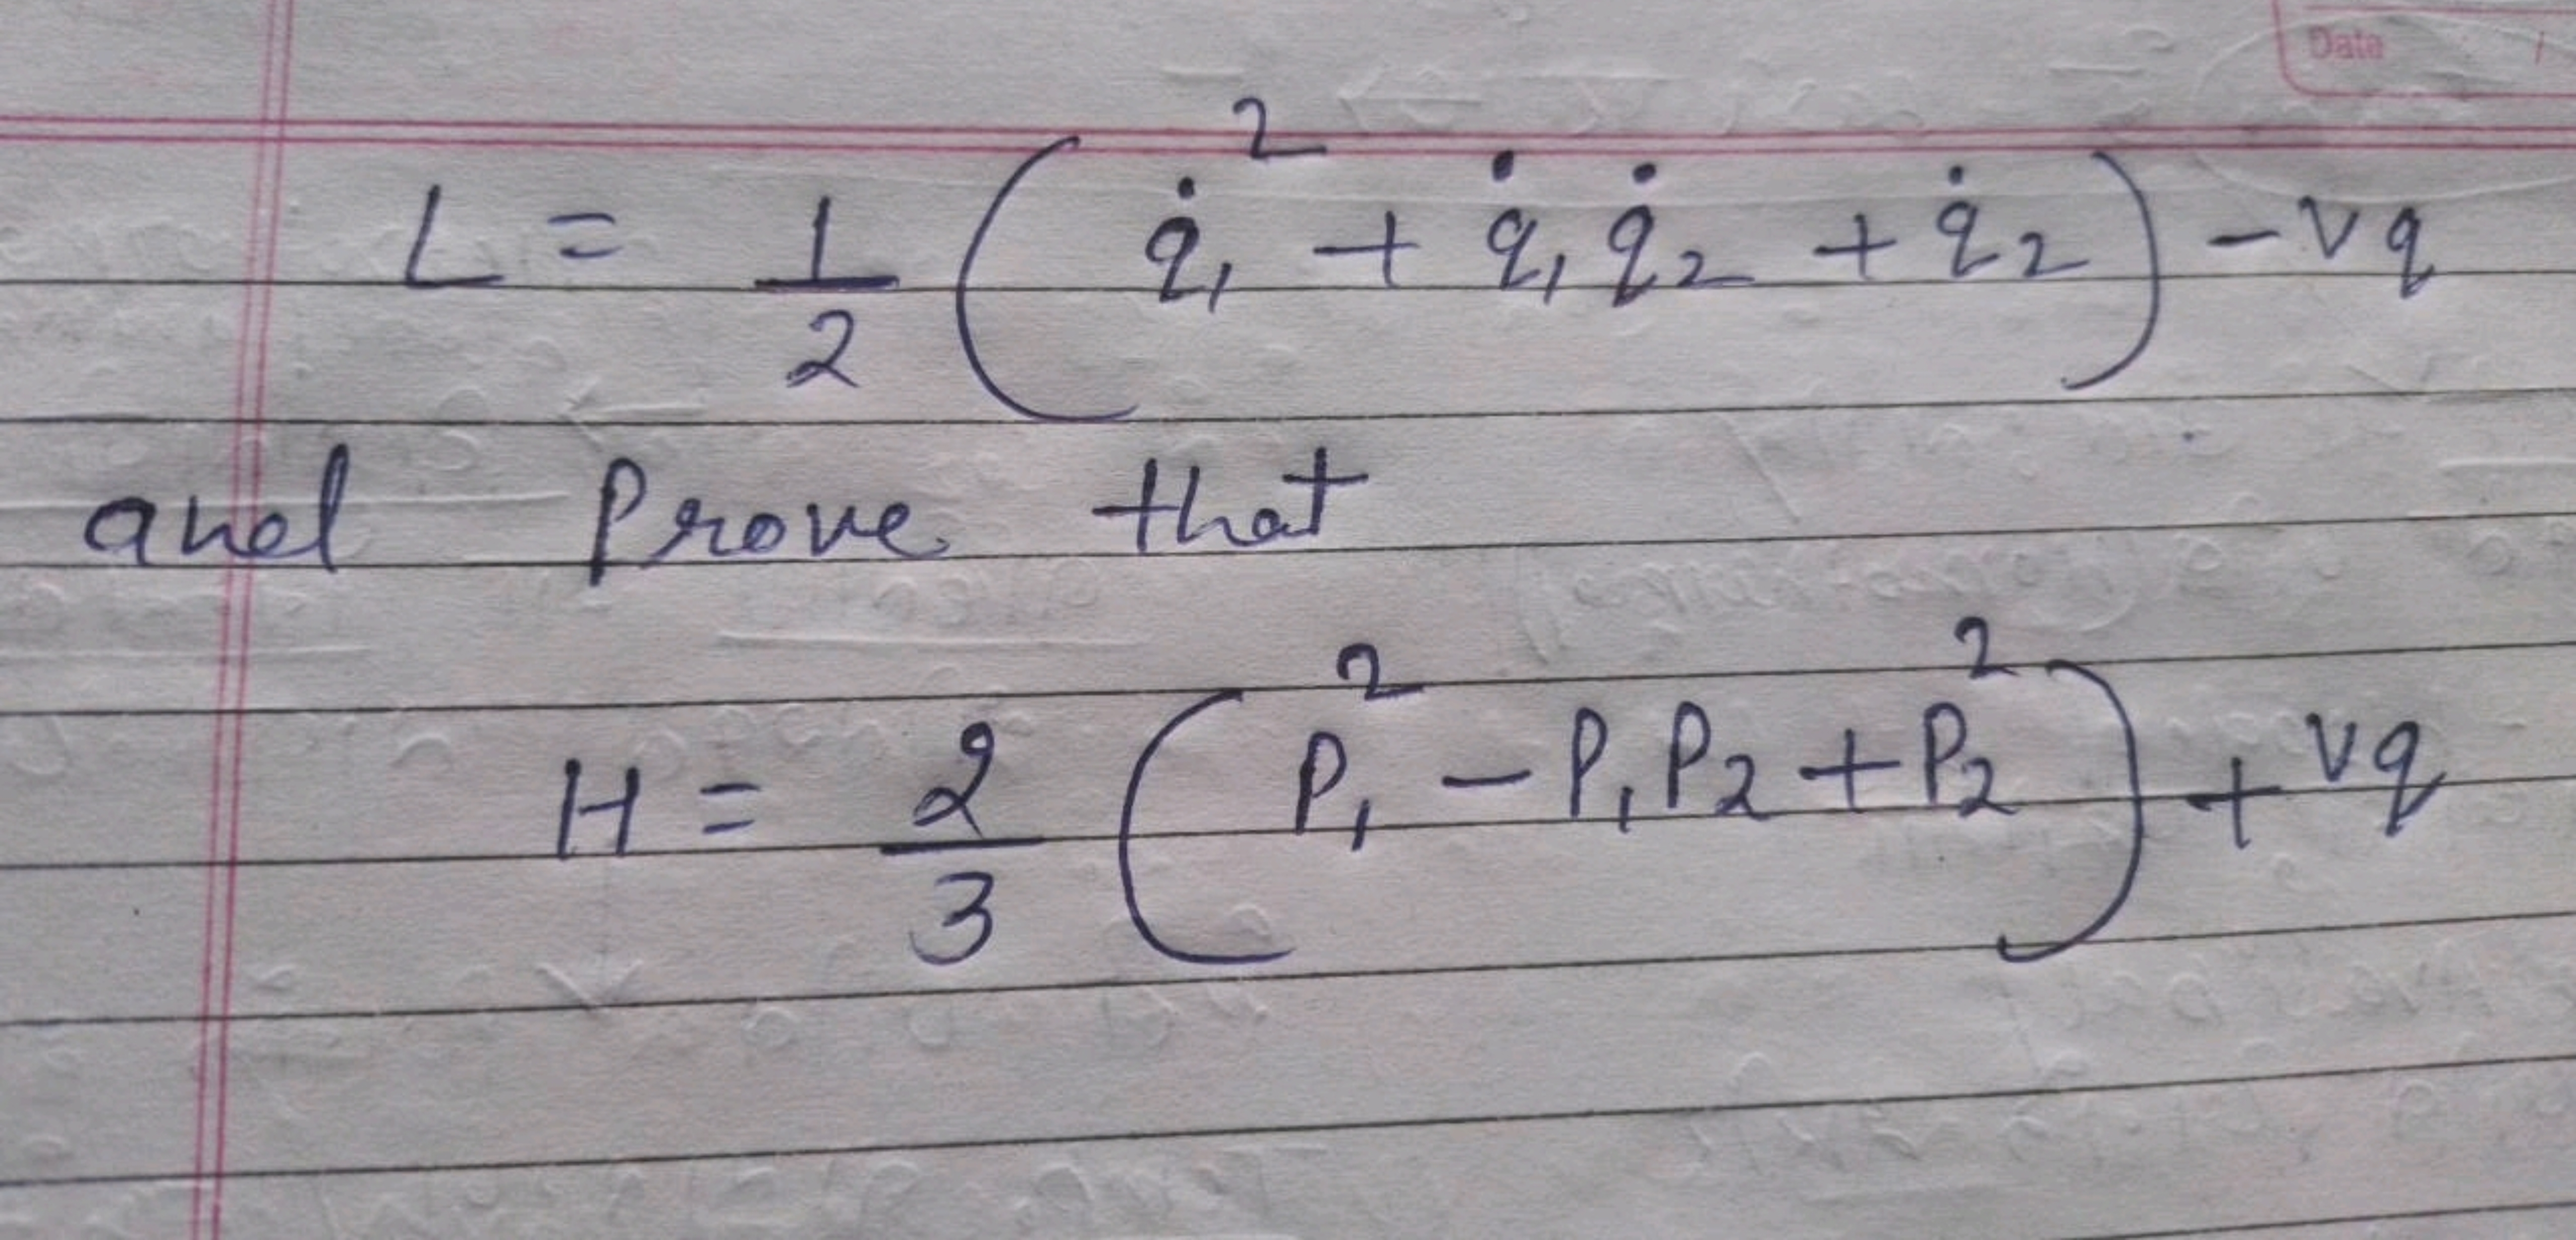 Date /
L = 1/2 ( q̇₁² + q̇₁ q̇₂ + q̇₂ ) - vq
and Prove that
H = 2/3 ( P₁² - P₁P₂ + P₂² ) + vq